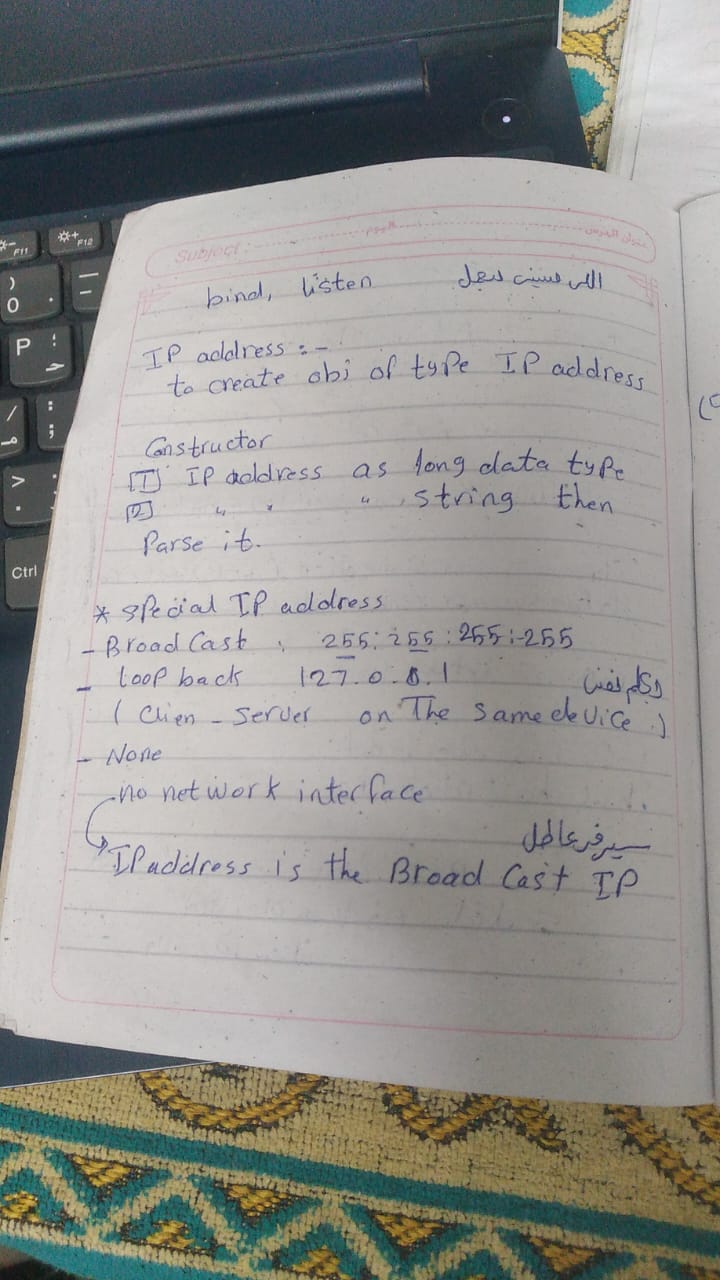 F11
F12
)
0
P
Ctrl
Subject :
اليوم
عنوان الدرس
bind, listen
IP address :-
to create obj of type IP address
Constructor
[1] IP address as long data type
[2] " " " string then
Parse it.
* special IP address
- Broad Cast : 255:255:255:-255
- loop back 127.0.0.1
( Clien - Server on The Same deVice )
- None
no net work interface
سيرفر عاطل
IP address is the Broad Cast IP